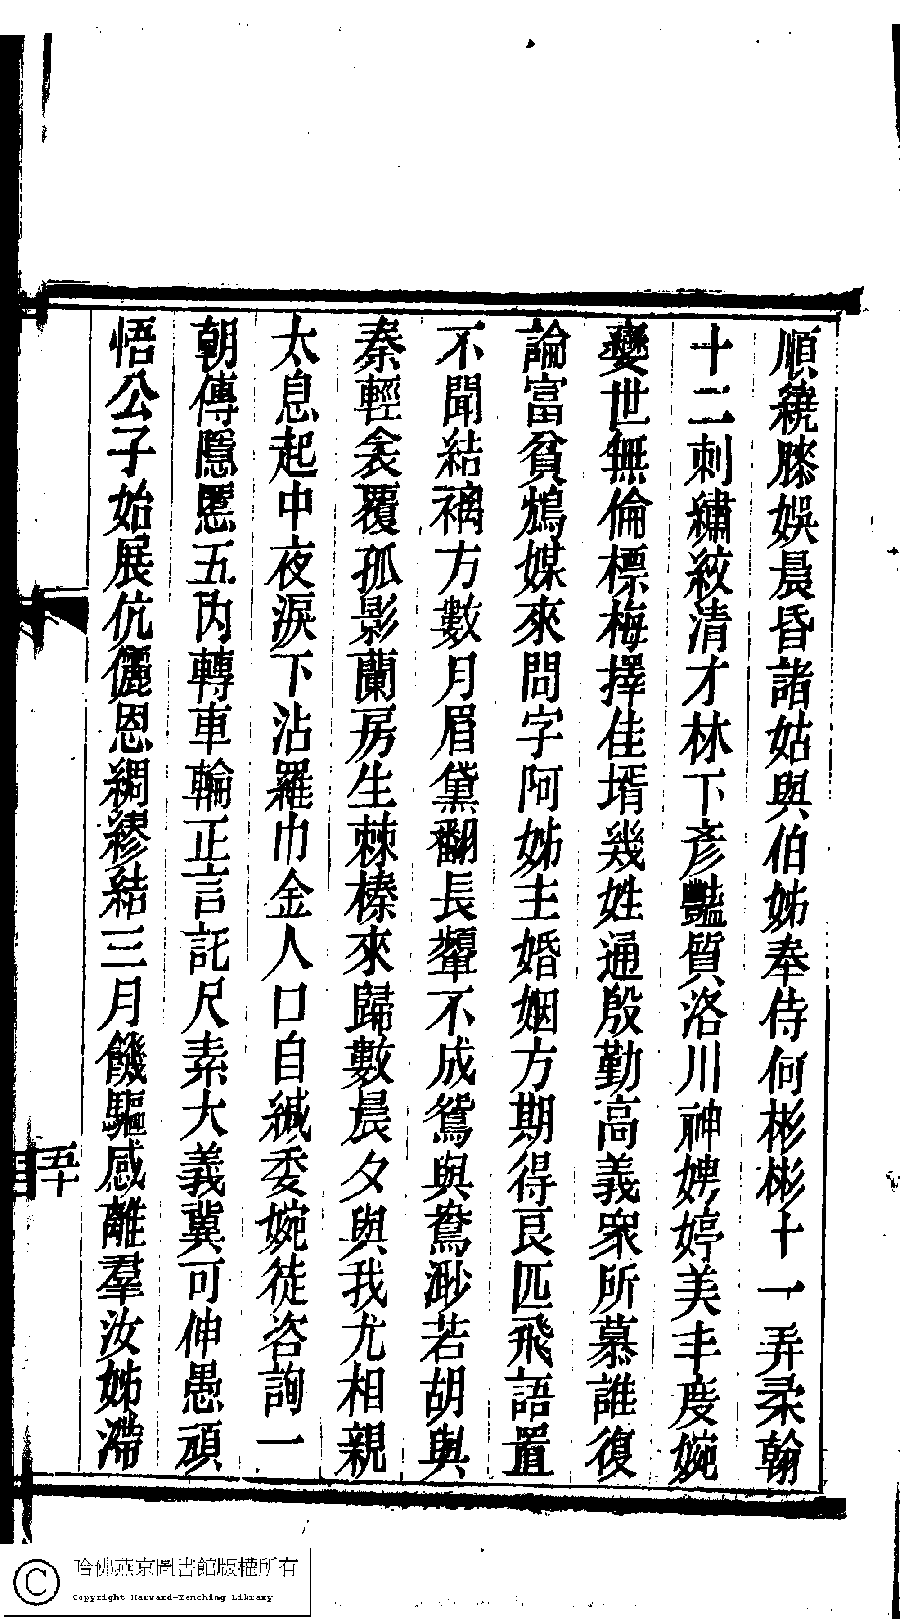 順繞膝娛晨昏諸姑與伯姊奉侍何彬彬十一弄柔翰
十二刺繡紋清才林下彥豔質洛川神娉婷美丰度婉
孌世無倫標梅擇佳壻幾姓通殷勤高義衆所慕誰復
論富貧鴆媒來問字阿姊主婚姻方期得良匹飛語置
不聞結褵方數月眉黛翻長顰不成鴛與鴦渺若胡與
秦輕衾覆孤影蘭房生棘榛來歸數晨夕與我尤相親
太息起中夜淚下沾羅巾金人口自緘委婉徒咨詢一
朝傳隱慝五內轉車輪正言託尺素大義冀可伸愚頑
悟公子始展伉儷恩綢繆結三月饑驅感離羣汝姊滯
五十
哈佛燕京圖書館版權所有
Copyright Harvard-Yenching Library